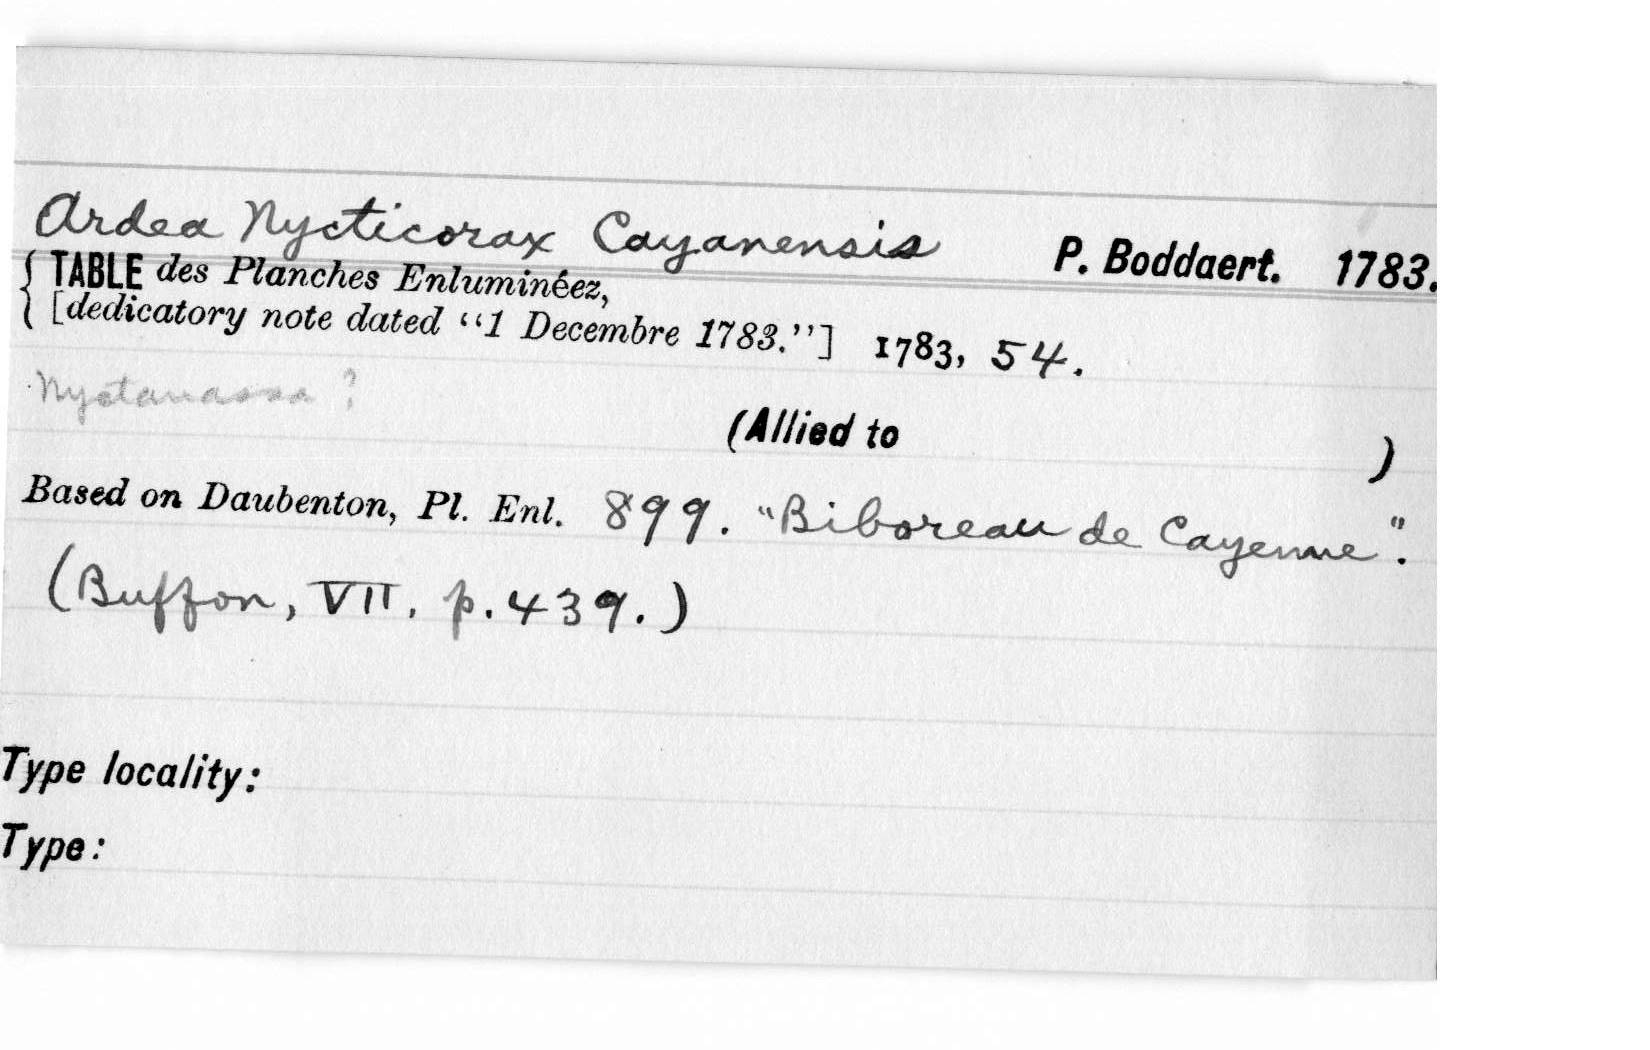 Ardea Nycticorax Cayanensis P. Boddaert. 1783.
{ TABLE des Planches Enluminéez,
[dedicatory note dated "1 Decembre 1783."] 1783, 54.
Nyctanassa ?
(Allied to )
Based on Daubenton, Pl. Enl. 899. "Bihoreau de Cayenne".
(Buffon, VII. p. 439.)
Type locality:
Type: